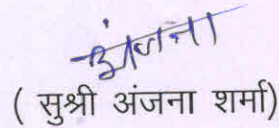 अंजना
( सुश्री अंजना शर्मा)